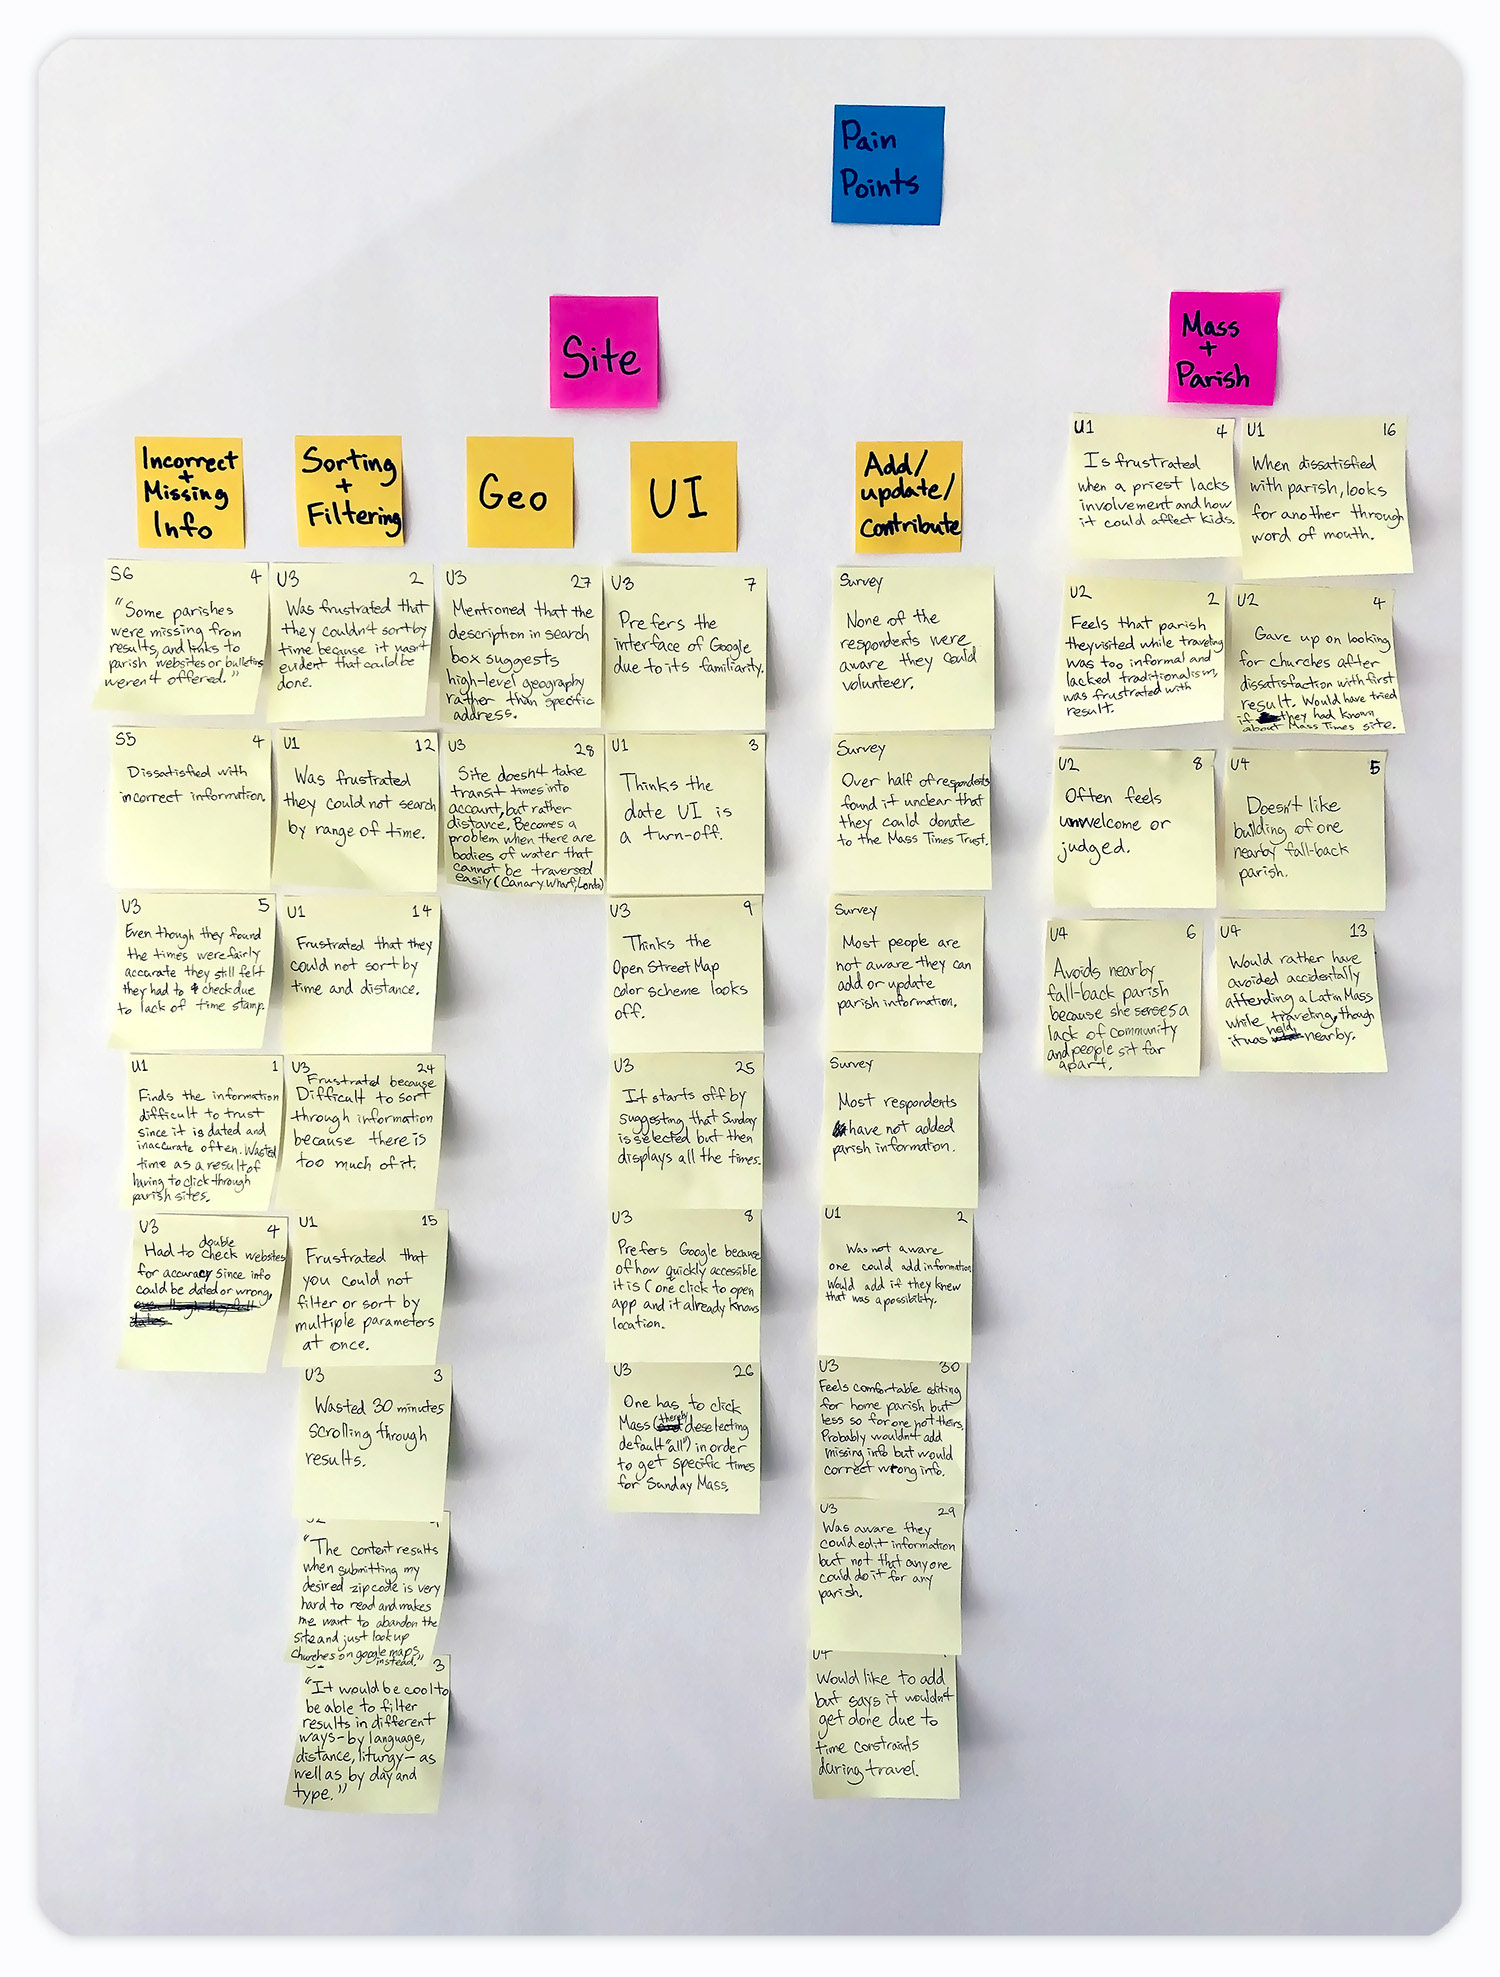 Pain
Points
Site
Mass
+
Parish
Incorrect
+
Missing
Info
Sorting
+
Filtering
Geo
UI
Add/
update/
contribute
S6 4
"Some parishes
were missing from
results, and links to
parish websites or bulletins
weren't offered."
S5 4
Dissatisfied with
incorrect information.
U3 5
Even though they found
the times were fairly
accurate they still felt
they had to check due
to lack of time stamp.
U1 1
Finds the information
difficult to trust
since it is dated and
inaccurate often. Wasted
time as a result of
having to click through
parish sites.
U3 4
Had to double check websites
for accuracy since info
could be dated or wrong,
U3 2
Was frustrated that
they couldn't sort by
time because it wasn't
evident that could be
done.
U1 12
Was frustrated
they could not search
by range of time.
U1 14
Frustrated that they
could not sort by
time and distance.
U3 24
Frustrated because
Difficult to sort
through information
because there is
too much of it.
U1 15
Frustrated that
you could not
filter or sort by
multiple parameters
at once.
U3 3
Wasted 30 minutes
scrolling through
results.
"The content results
when submitting my
desired zipcode is very
hard to read and makes
me want to abandon the
site and just look up
churches on google maps
instead."
3
"It would be cool to
be able to filter
results in different
ways-by language,
distance, liturgy- as
well as by day and
type."
U3 27
Mentioned that the
description in search
box suggests
high-level geography
rather than specific
address.
U3 28
Site doesn't take
transit times into
account, but rather
distance. Becomes a
problem when there are
bodies of water that
cannot be traversed
easily (Canary Wharf, London)
U3 7
Prefers the
interface of Google
due to its familiarity.
U1 3
Thinks the
date UI is
a turn-off.
U3 9
Thinks the
Open Street Map
color scheme looks
off.
U3 25
It starts off by
suggesting that Sunday
is selected but then
displays all the times.
U3 8
Prefers Google because
of how quickly accessible
it is (one click to open
app and it already knows
location.
U3 26
One has to click
Mass (thereby deselecting
default "all") in order
to get specific times
for Sunday Mass.
Survey
None of the
respondents were
aware they could
volunteer.
Survey
Over half of respondents
found it unclear that
they could donate
to the Mass Times Trust.
Survey
Most people are
not aware they can
add or update
parish information.
Survey
Most respondents
have not added
parish information.
U1 2
Was not aware
one could add information
Would add if they knew
that was a possibility.
U3 30
Feels comfortable editing
for home parish but
less so for one not theirs.
Probably wouldn't add
missing info but would
correct wrong info.
U3 29
Was aware they
could edit information
but not that anyone
could do it for any
parish.
U4
Would like to add
but says it wouldn't
get done due to
time constraints
during travel.
U1 4
Is frustrated
when a priest lacks
involvement and how
it could affect kids.
U1 16
When dissatisfied
with parish, looks
for another through
word of mouth.
U2 2
Feels that parish
they visited while traveling
was too informal and
lacked traditionalism,
was frustrated with
result.
U2 4
Gave up on looking
for churches after
dissatisfaction with first
result. Would have tried
if they had known
about Mass Times site.
U2 8
Often feels
unwelcome or
judged.
U4 5
Doesn't like
building of one
nearby fall-back
parish.
U4 6
Avoids nearby
fall-back parish
because she senses a
lack of community
and people sit far
apart.
U4 13
Would rather have
avoided accidentally
attending a Latin Mass
while traveling, though
it was held nearby.